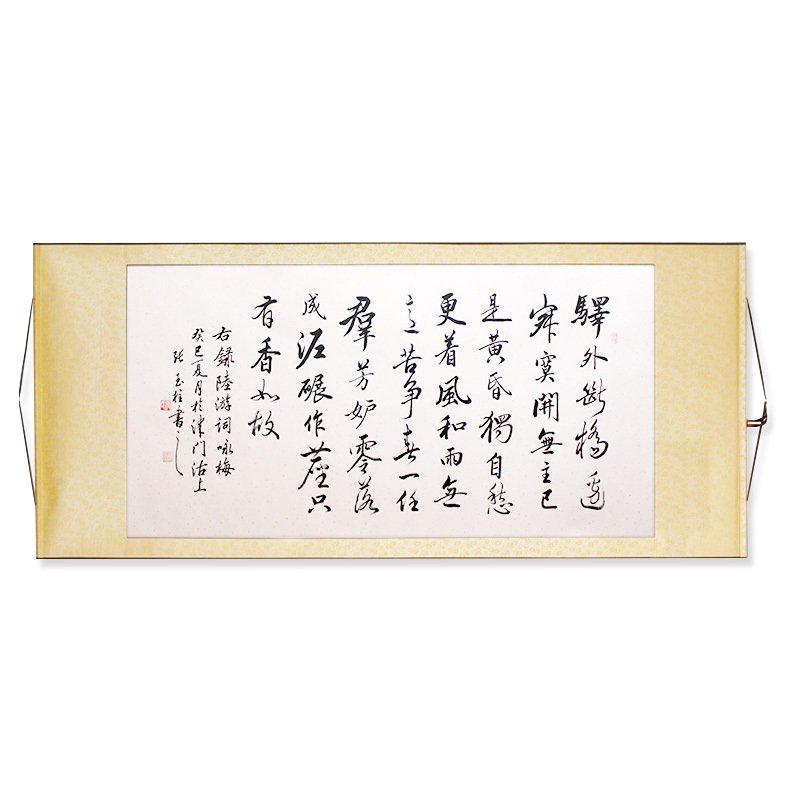 驛外斷橋邊
寂寞開無主已
是黃昏獨自愁
更着風和雨無
意苦争春一任
羣芳妒零落
成泥碾作塵只
有香如故
右録陸游詞咏梅
癸巳夏月於津門沽上
張玉柱書